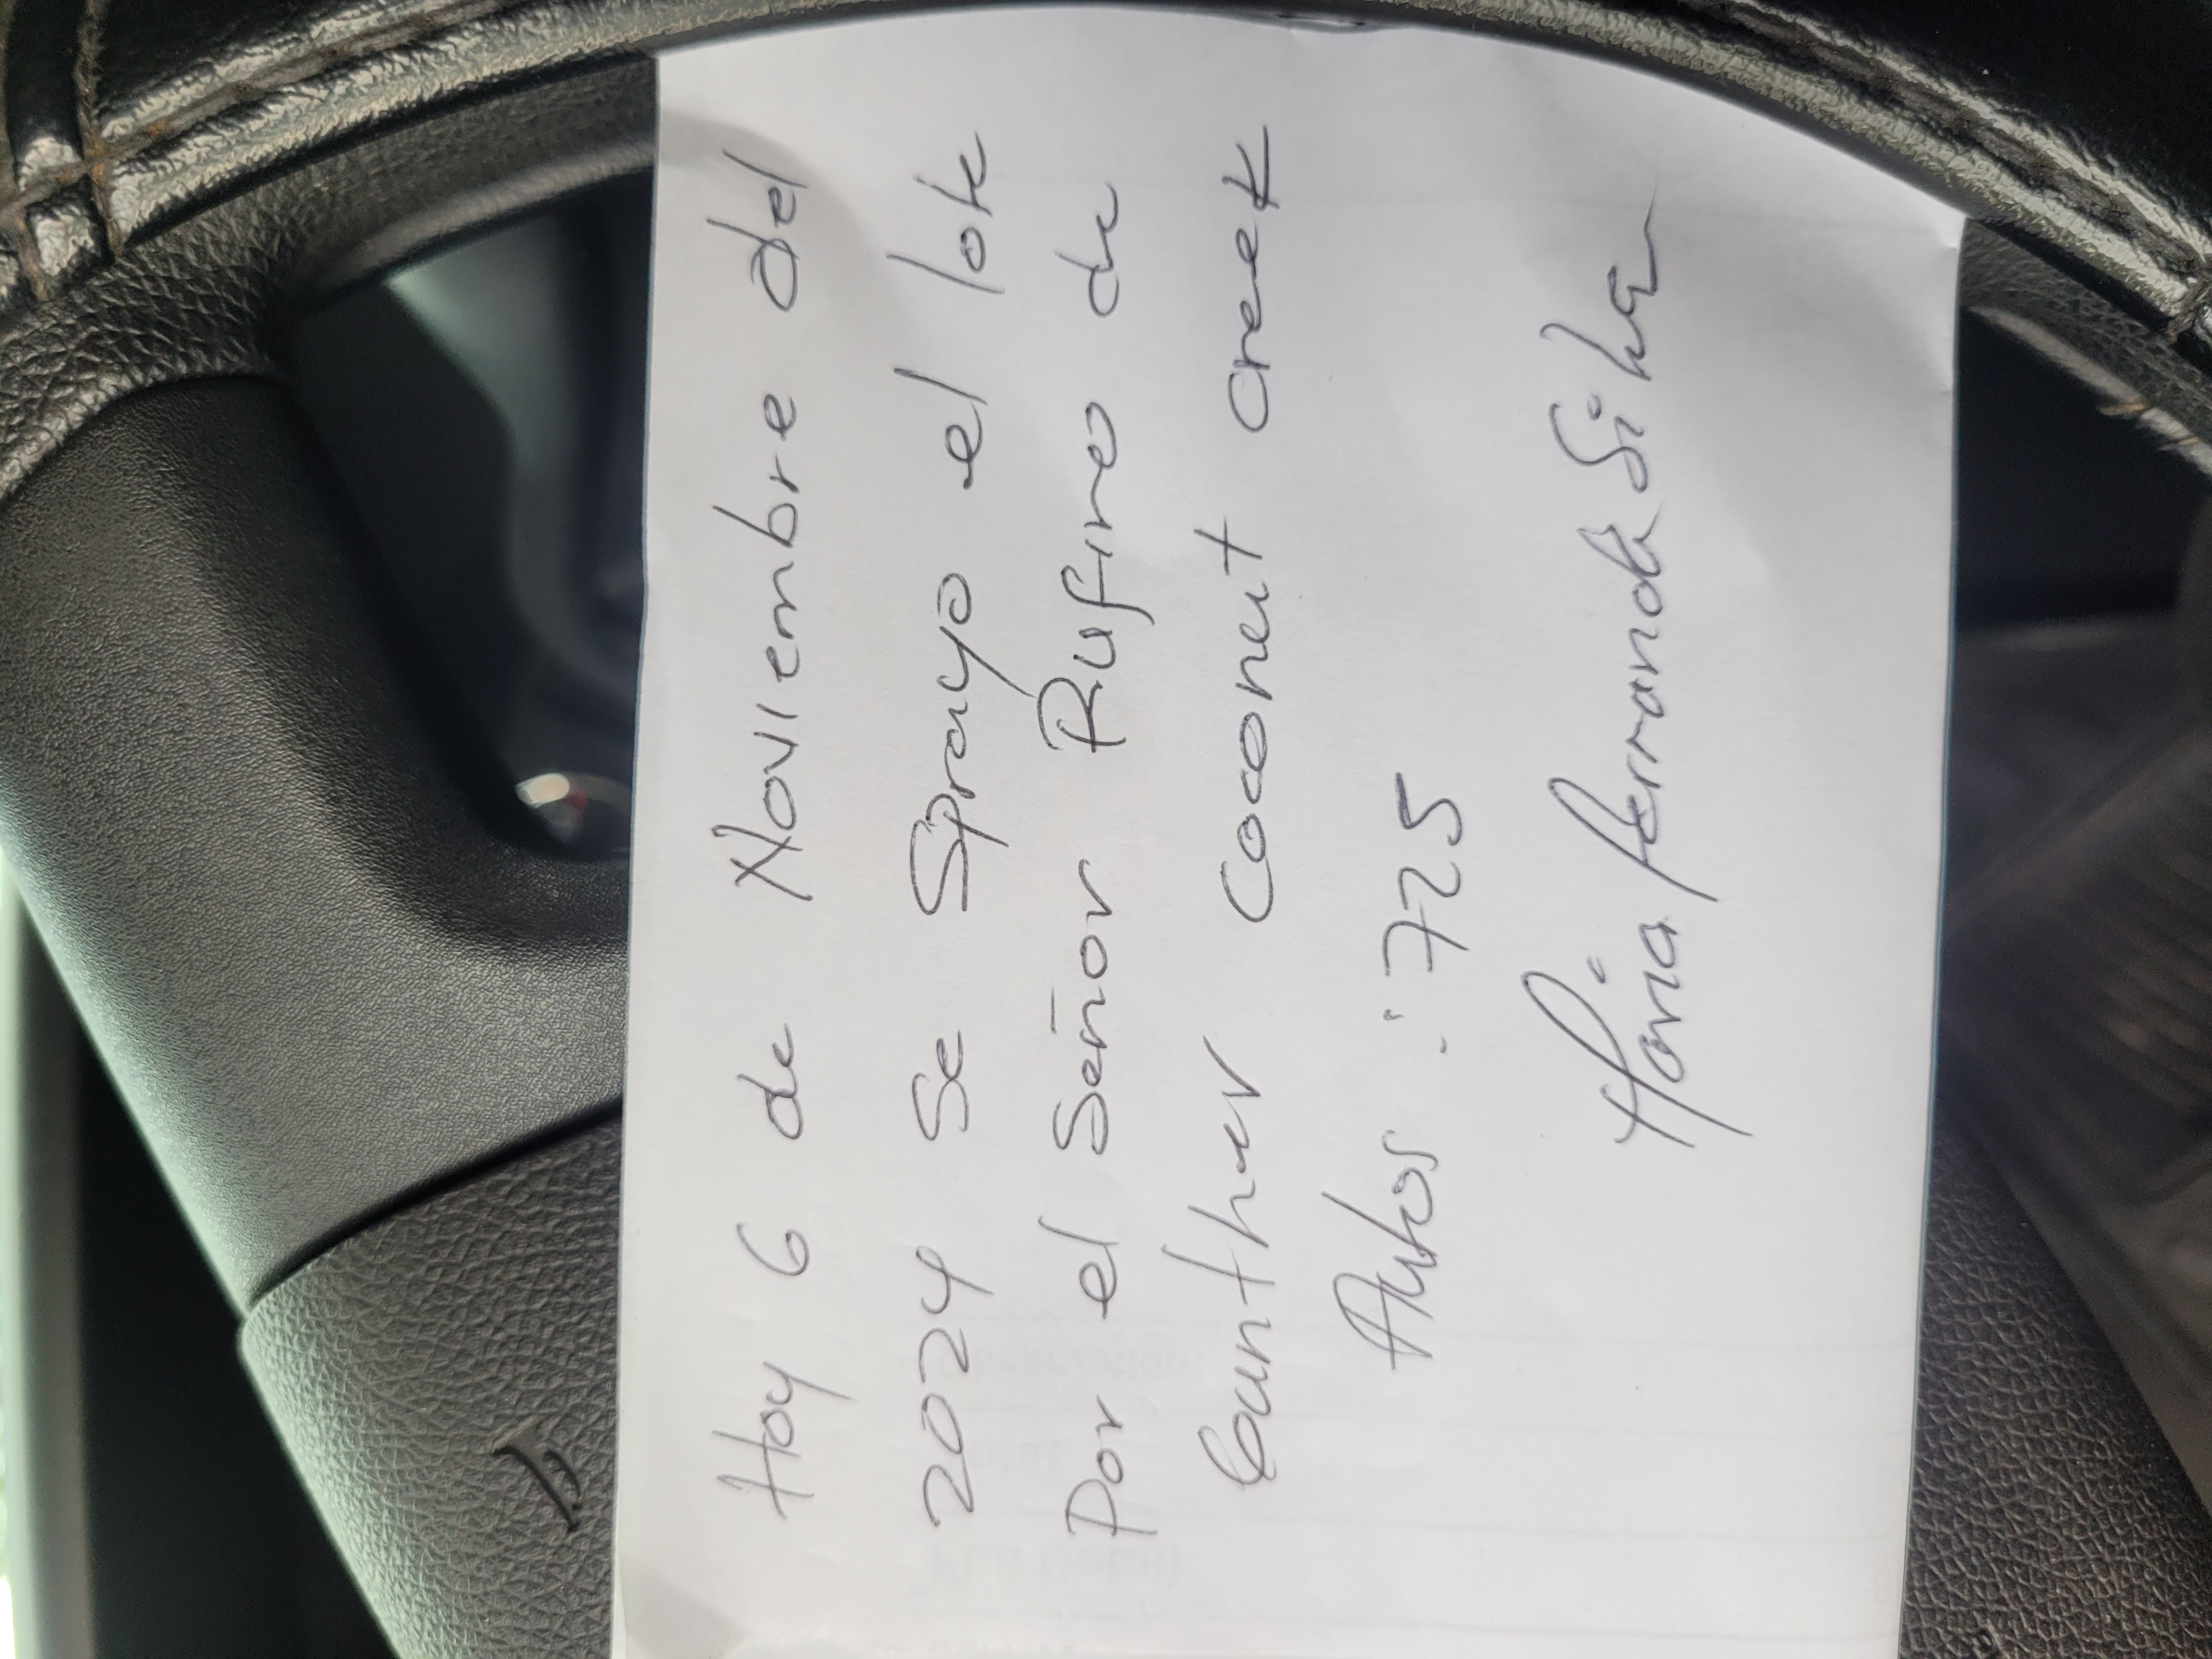 Hoy 6 de Noviembre del
2024 Se Sprayo el lote
Por el Señor Rufino de
Gunther Coconut creek
Autos : 725
Maria fernanda Silva